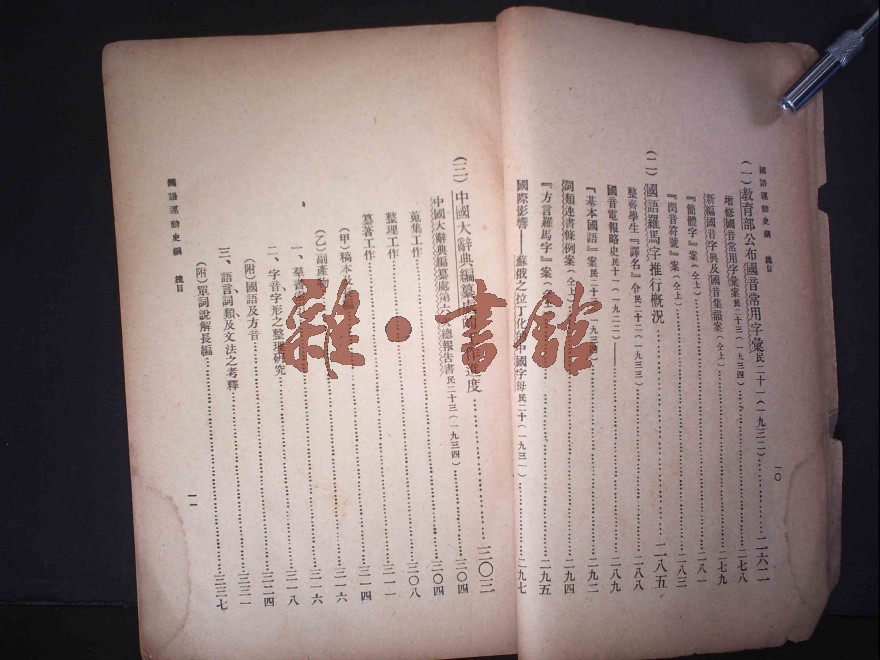 國語運動史綱　總目
一〇
(一)教育部公布國音常用字彙民二十一(一九三二)……二六二
增修國音常用字彙案民二十三(一九三四)……二七八
新編國音字典及國音集韻案(仝上)……二七九
『簡體字』案(仝上)……二八一
『閏音符號』案(仝上)……二八三
(二)國語羅馬字推行概況……二八五
整齊學生『譯名』令民二十二(一九三三)……二八八
國音電報略史民十一(一九二二)——……二八九
『基本國語』案民二十三(一九三四)……二九二
詞類連書條例案(仝上)……二九四
『方言羅馬字』案(仝上)……二九五
國際影響——蘇俄之拉丁化中國字母民二十(一九三一)……二九七
(三)中國大辭典編纂……進度……三〇三
中國大辭典編纂處第六次總報告書民二十三(一九三四)……三〇四
蒐集工作……三〇四
整理工作……三〇八
纂著工作……三一一
三一四
(甲)稿本及……三一六
(乙)副產物……三一六
一、羣書……三一八
二、字音字形之整理研究……三二四
(附)國語及方音……三三一
三、語言詞類及文法之考釋……三三七
(附)單詞說解長編
國語運動史綱　總目
一一
雜·書館